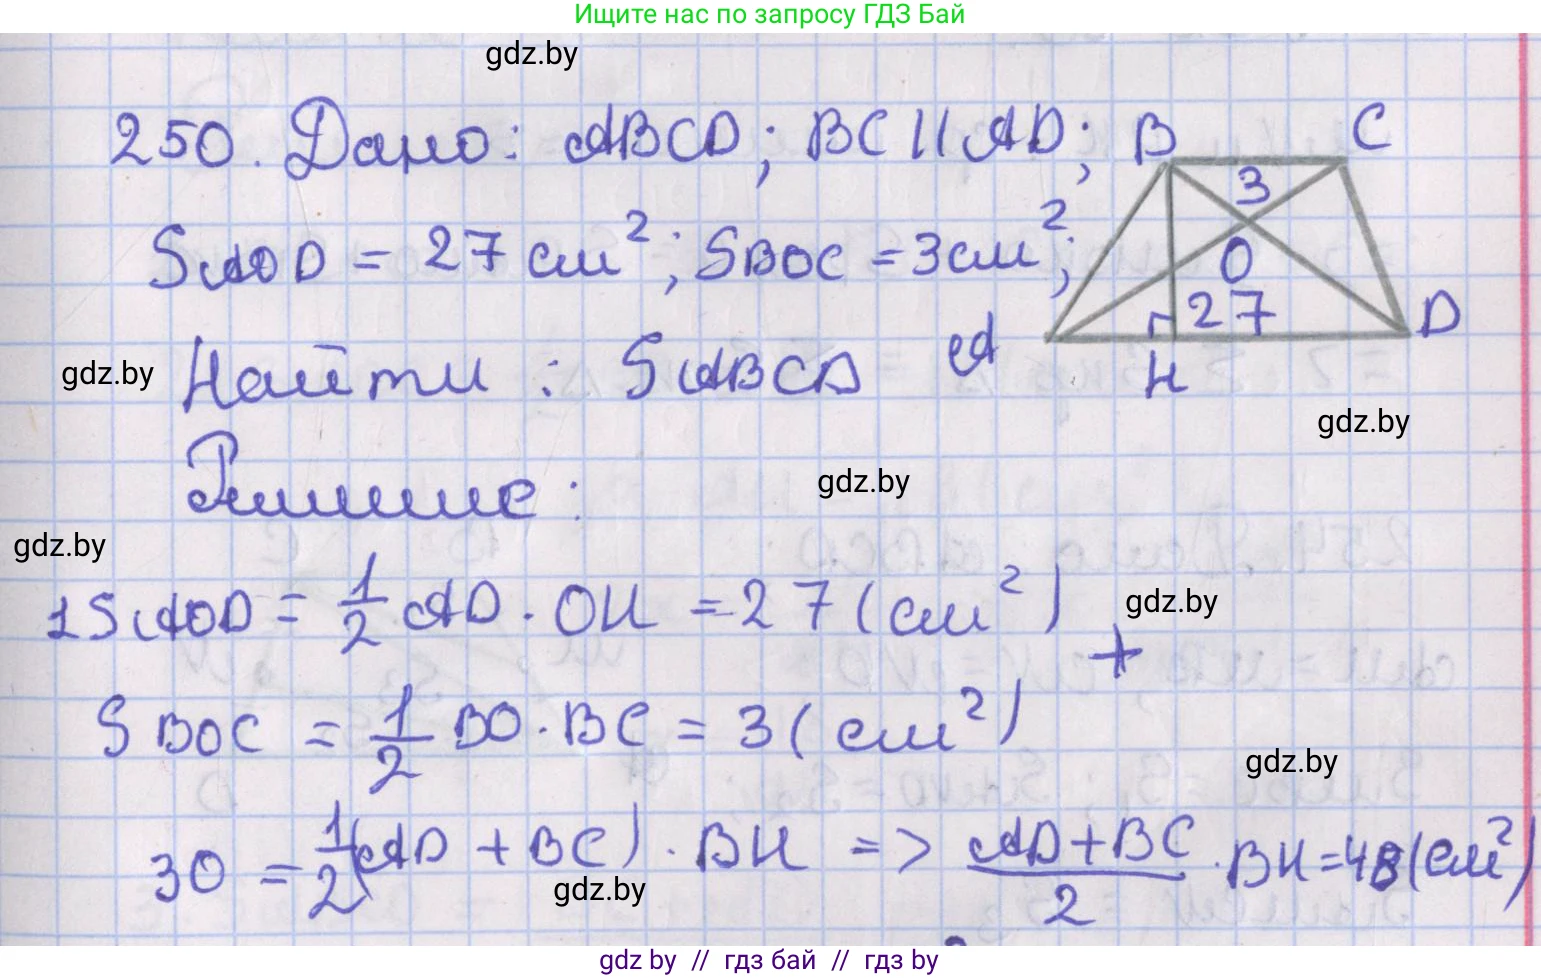 Ищите нас по запросу ГДЗ Бай
gdz.by
250. Дано: ABCD; BC || AD;
B C
3
S AOD = 27 см²; S BOC = 3 см²;
O
27
A H D
gdz.by
Найти: S ABCD
gdz.by
Решение:
gdz.by
gdz.by
1 S AOD = 1/2 AD · OH = 27 (см²)
gdz.by
+
S BOC = 1/2 BO · BC = 3 (см²)
gdz.by
30 = 1/2 (AD + BC) · BH => AD + BC / 2 · BH = 48 (см²)
gdz.by
gdz by // гдз бай // gdz by